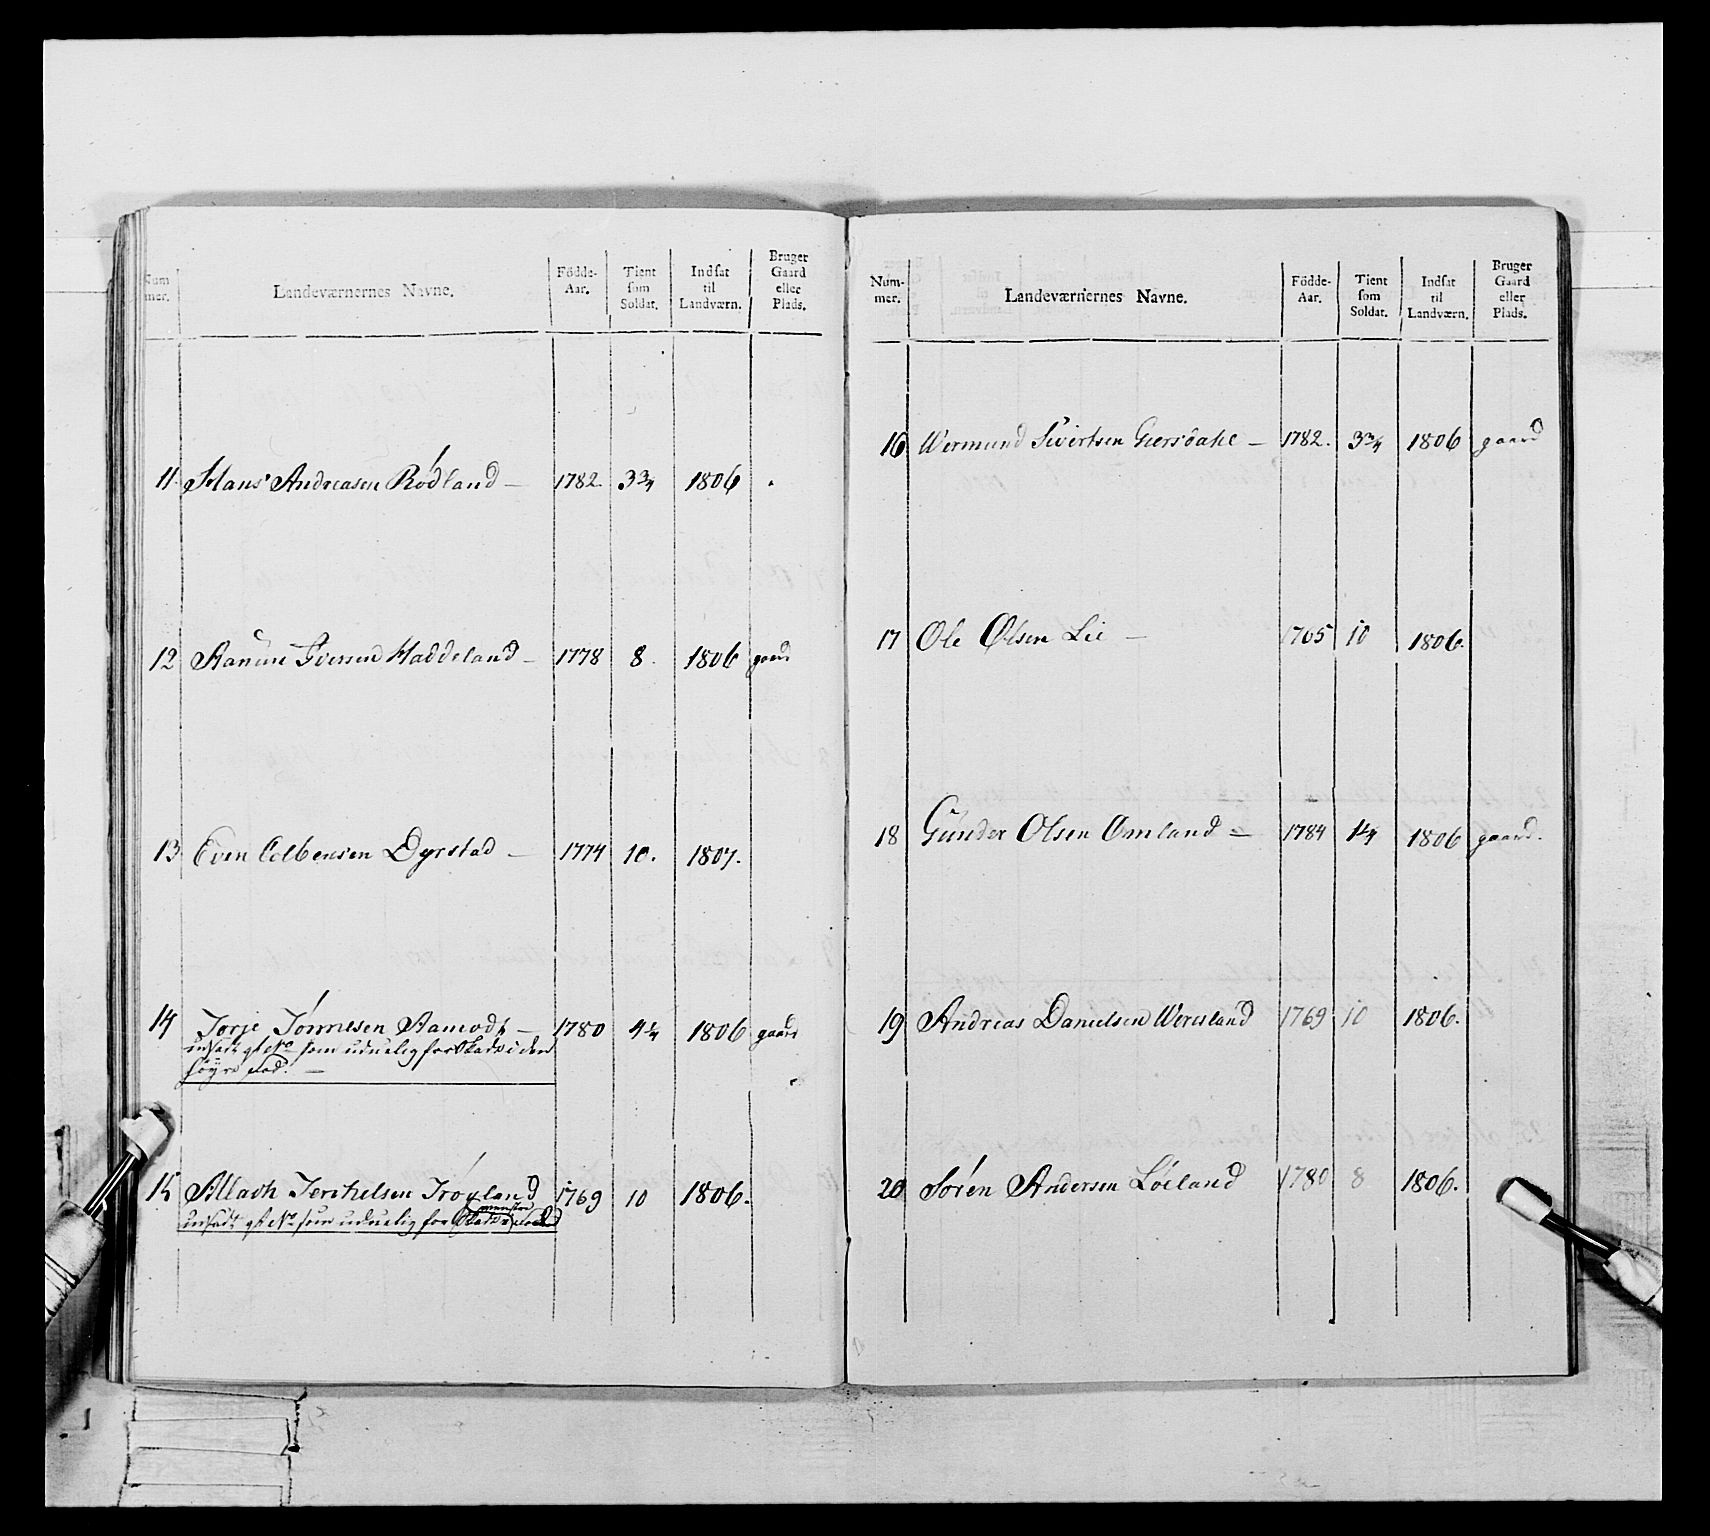 Num mer. Landeværnernes Navne. Födde-Aar. Tient som Soldat. Indsat til Landværn. Bruger Gaard eller Plads.
11 Hans Andreasen Rödland — 1782 3¾ 1806
12 Aanun Iversen Haddeland — 1778 8. 1806 gaard
13 Even Colbensen Dyrstad — 1774 10. 1807.
14 Torje Tönnesen Aamodt — 1780 4¼ 1806 gaard
som uduelig for Skade i den
höyre
15 Allach Terchelsen Tröyland 1769 10 1806.
som uduelig for Skade
Num- mer. Landeværnernes Navne. Födde-Aar. Tient som Soldat. Indsat til Landværn. Bruger Gaard eller Plads.
16 Wermund Sivertsen — 1782. 3¾ 1806 gaard
17 Ole Olsen Lie — 1765 10 1806.
18 Gunder Olsen Omland — 1784 1¼ 1806 gaard.
19 Andreas Danielsen Weresland 1769 10 1806.
20 Sören Andersen Löeland 1780 8 1806.